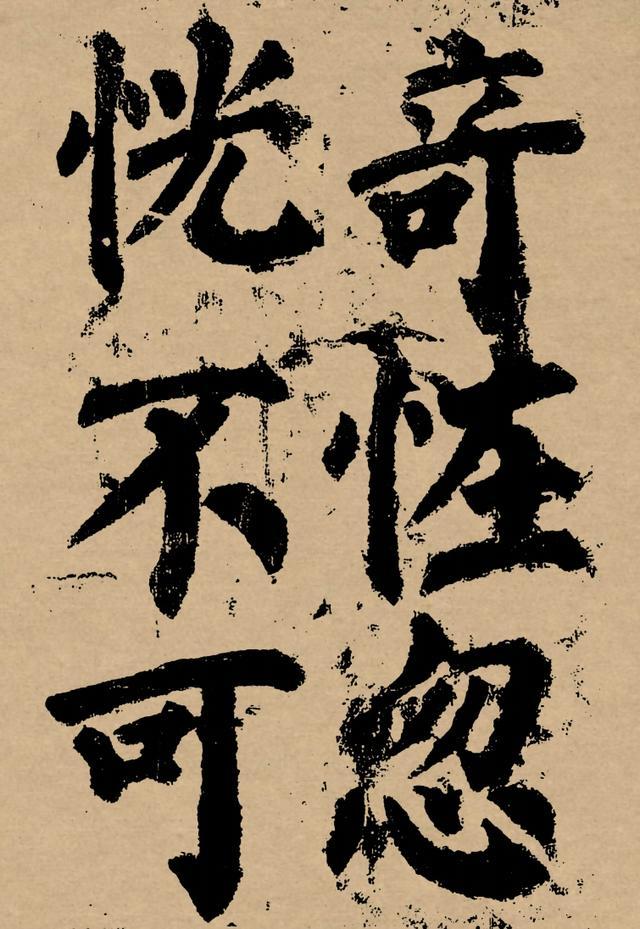 奇恠忽
恍不可